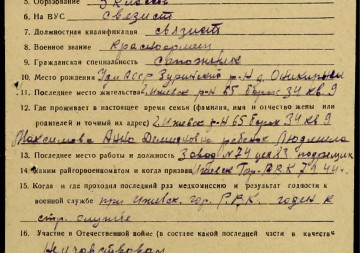 5. Образование 3 класса
6. На ВУС связист
7. Должностная квалификация связист
8. Военное звание красноармеец
9. Гражданская специальность сапожник
10. Место рождения Удм АССР р-н д.
11. Последнее место жительства Ижевск р-н 65 34 кв 9
12. Где проживает в настоящее время семья (фамилия, имя и отчество жены или
родителей и точный их адрес) 2 Ижевск р-н 65 34 кв 9
Максимова Анна Демидовна ребенок Людмила
13. Последнее место работы и должность Завод №24 цех 13
14. Каким райгорвоенкоматом и когда призван Ижевск Гор. РВК 44 г.
15. Когда и где проходил последний раз медкомиссию и результат годности к
военной службе при Ижевск. гор. Р.В.К. годен к
стр. службе
16. Участие в Отечественной войне (в составе какой последней части в качестве
Не участвовал